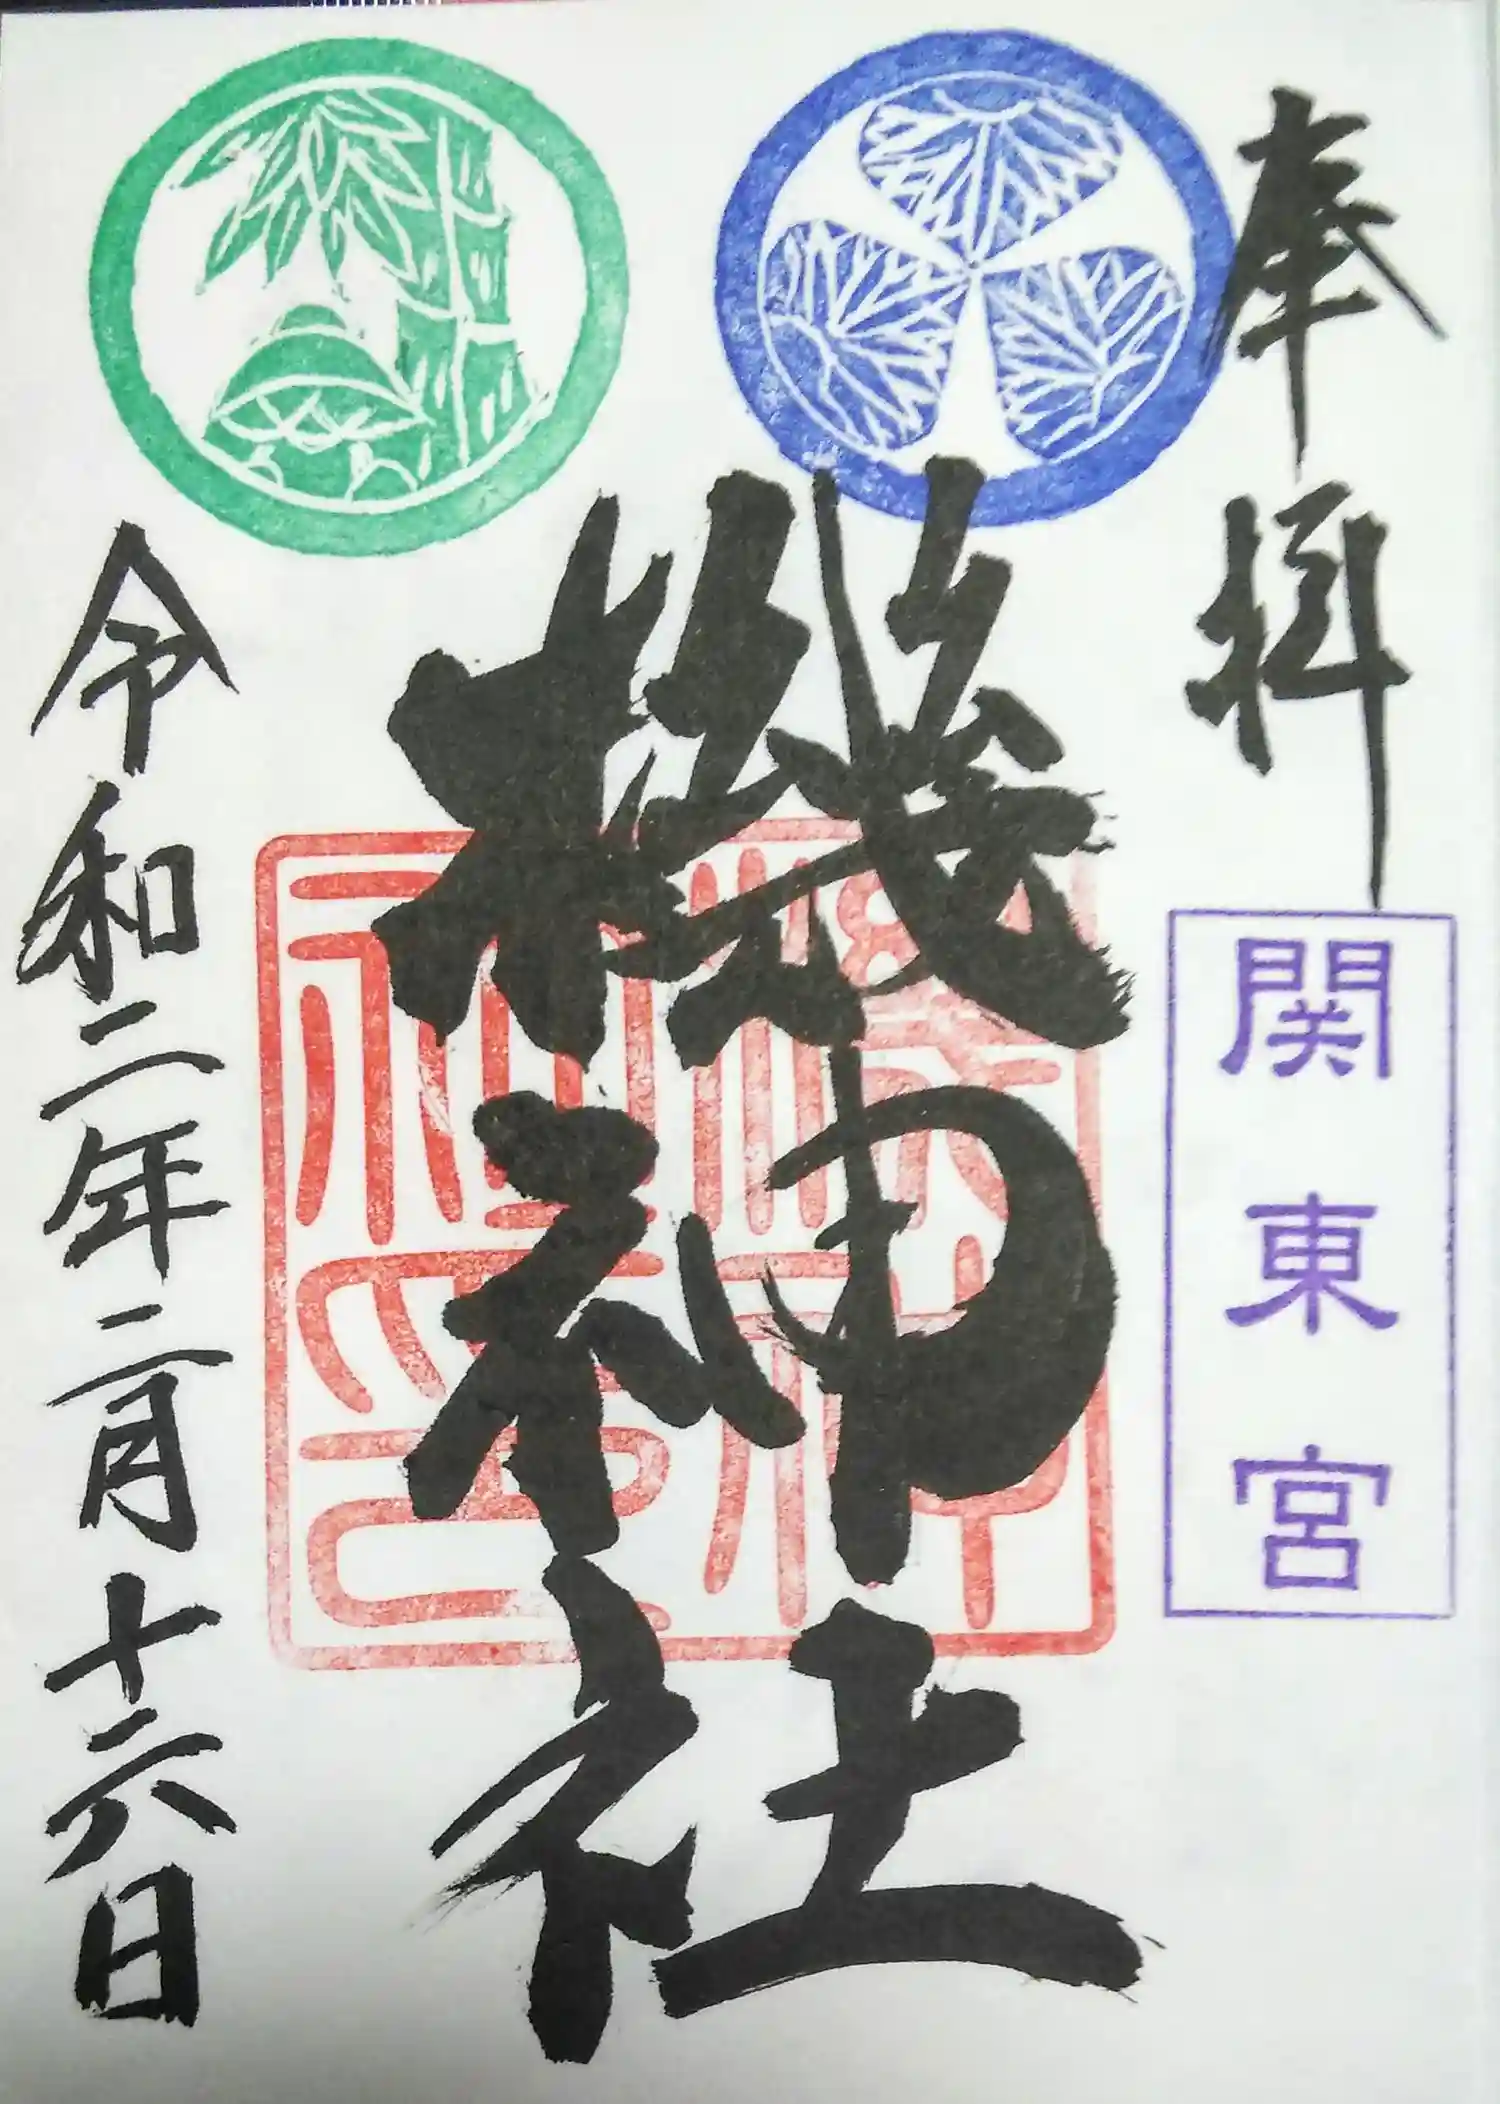 奉拝
関東宮
機神社
機神社印
令和二年二月十六日